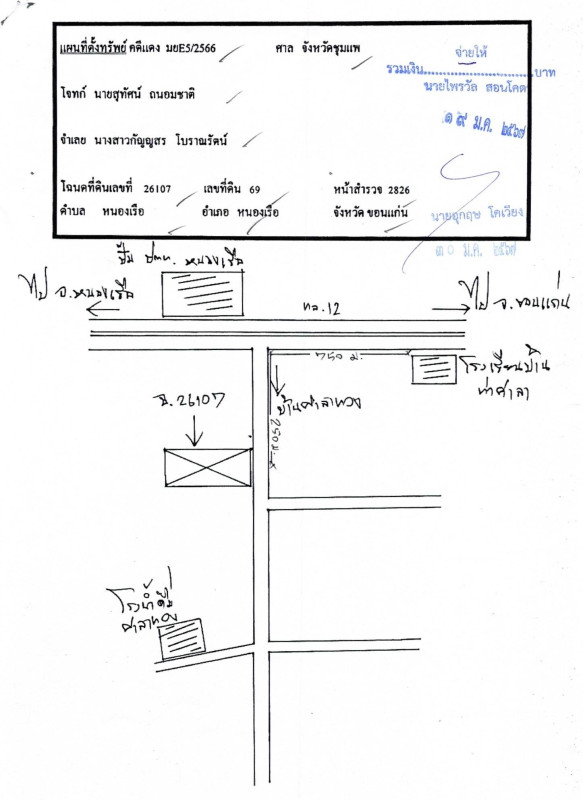 แผนที่ตั้งทรัพย์ คดีแดง มยE5/2566 ศาล จังหวัดชุมแพ
จ่ายให้
รวมเงิน..............................บาท
นายไพรวัล สอนโคตร
โจทก์ นายสุทัศน์ ถนอมชาติ
๑๙ ม.ค. ๒๕๖๗
จำเลย นางสาวกัญญูสร โบราณรัตน์
โฉนดที่ดินเลขที่ 26107 เลขที่ดิน 69 หน้าสำรวจ 2826
ตำบล หนองเรือ อำเภอ หนองเรือ จังหวัด ขอนแก่น
นายอุกฤษ โคเวียง
๓๐ ม.ค. ๒๕๖๗
ปั๊ม ปตท. หนองเรือ
ไป อ.หนองเรือ
ทล.12
ไป จ.ขอนแก่น
750 ม.
โรงเรียนบ้าน
ท่าศาลา
ฉ.26107
บ้านศาลาทอง
250 ม.
โรงน้ำดื่ม
ศาลาทอง